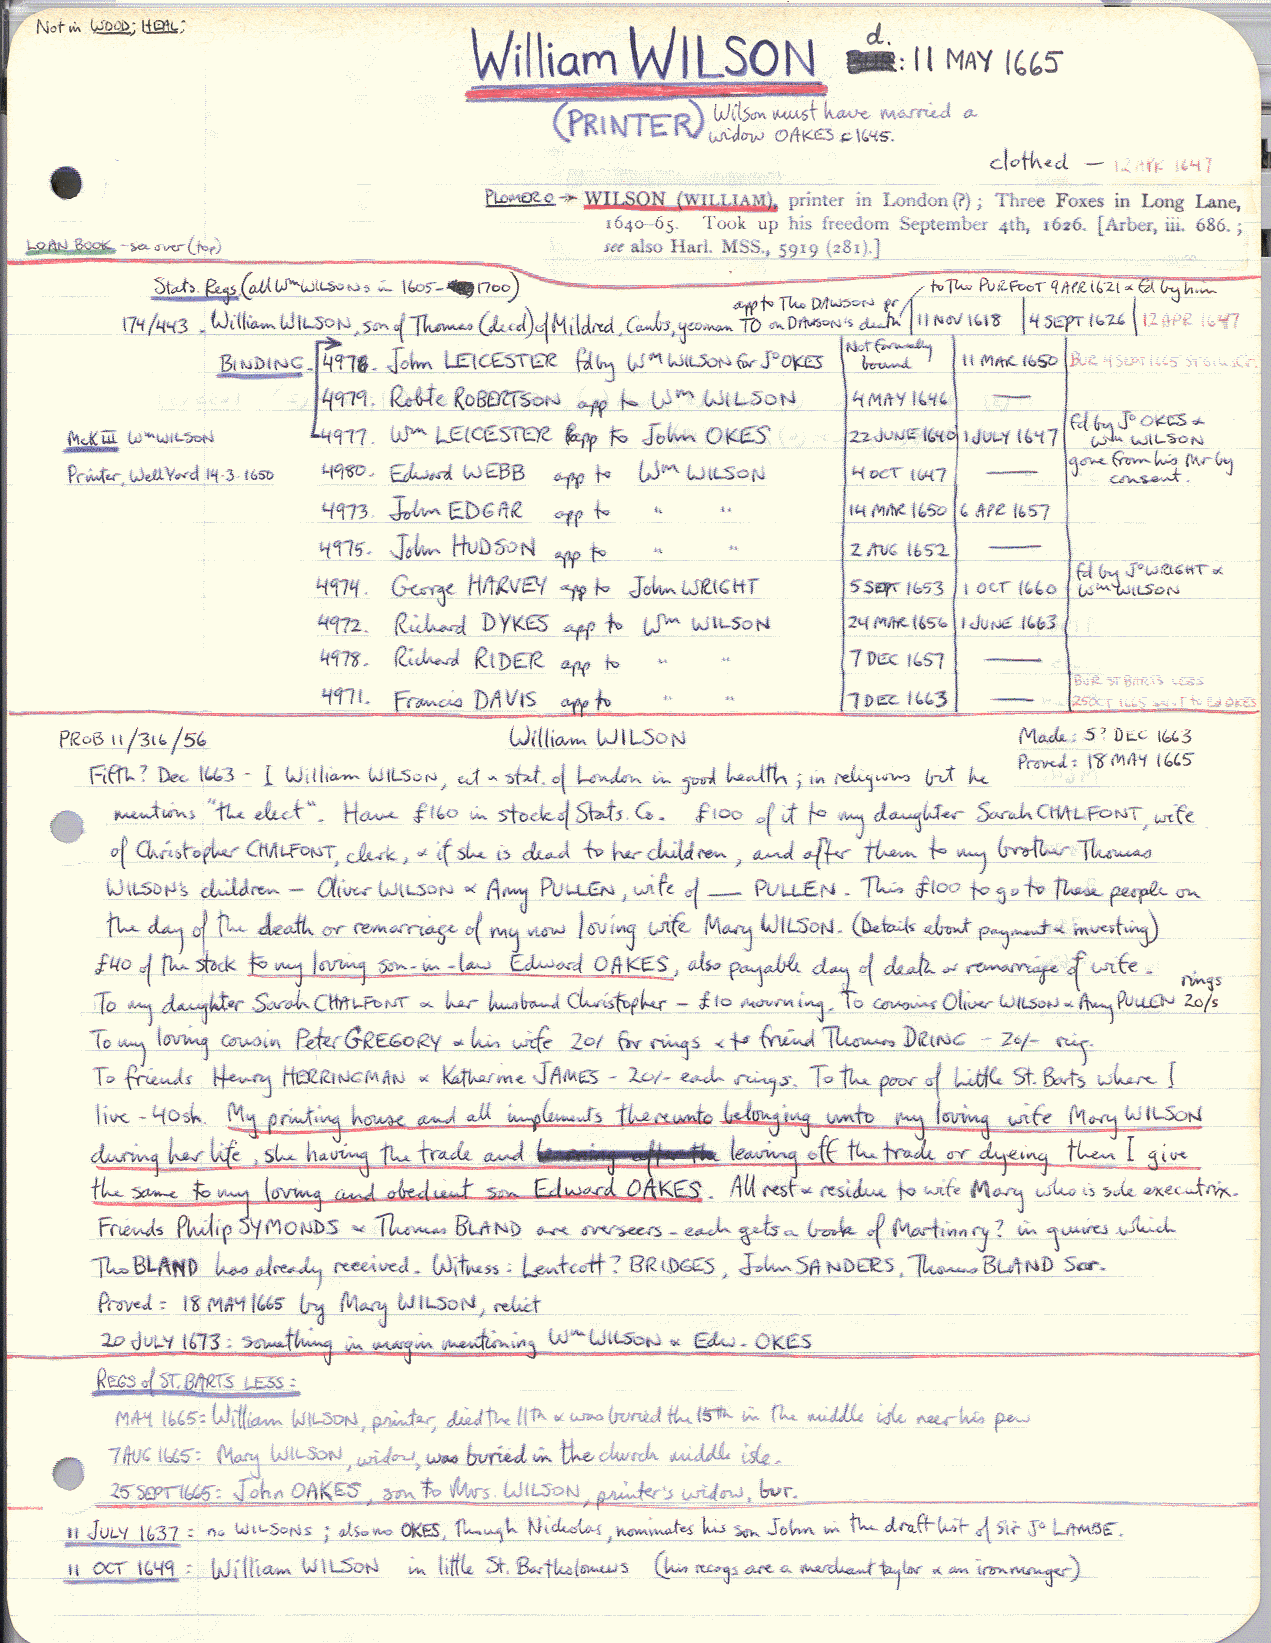 Not in WOOD; HEAL;
William WILSON d. : 11 MAY 1665
(PRINTER) Wilson must have married a
widow OAKES c 1645.
clothed — 12 APR 1647
PLOMER → WILSON (WILLIAM), printer in London (?); Three Foxes in Long Lane,
1640–65. Took up his freedom September 4th, 1626. [Arber, iii. 686. ;
see also Harl. MSS., 5919 (281).]
LOAN BOOK - see over (top)
Stats. Regs (all Wm WILSONS in 1605- 1700)
to Tho PURFOOT 9 APR 1621 & fd by him
app to Tho DAWSON pr
174/443. William WILSON, son of Thomas (decd) of Mildred, Cambs, yeoman TO on DAWSON's death 11 NOV 1618 4 SEPT 1626 12 APR 1647
BINDING. 4976. John LEICESTER fd by Wm WILSON for Jo OKES Not formally bound 11 MAR 1650 BUR 4 SEPT 1665
4979. Robte ROBERTSON app to Wm WILSON 4 MAY 1646 —
McK III Wm WILSON
4977. Wm LEICESTER app to John OKES 22 JUNE 1640 1 JULY 1647 fd by Jo OKES & Wm WILSON
Printer, Well Yard 14-3-1650
4980. Edward WEBB app to Wm WILSON 4 OCT 1647 — gone from his Mr by consent.
4973. John EDGAR app to " " 14 MAR 1650 6 APR 1657
4975. John HUDSON app to " " 2 AUG 1652 —
4974. George HARVEY app to John WRIGHT 5 SEPT 1653 1 OCT 1660 fd by Jo WRIGHT & Wm WILSON
4972. Richard DYKES app to Wm WILSON 24 MAR 1656 1 JUNE 1663
4978. Richard RIDER app to " " 7 DEC 1657 —
4971. Francis DAVIS app to " " 7 DEC 1663 — BUR ST BARTS LESS 25 OCT 1665 to Ed OKES
PROB 11/316/56 William WILSON Made: 5? DEC 1663
Proved: 18 MAY 1665
Fifth? Dec 1663 - I William WILSON, cit & stat. of London in good health; in religious bit he
mentions "the elect". Have £160 in stock of Stats. Co. £100 of it to my daughter Sarah CHALFONT, wife
of Christopher CHALFONT, clerk, & if she is dead to her children, and after them to my brother Thomas
WILSON's children - Oliver WILSON & Amy PULLEN, wife of — PULLEN. This £100 to go to these people on
the day of the death or remarriage of my now loving wife Mary WILSON. (Details about payment & investing)
£40 of the stock to my loving son-in-law Edward OAKES, also payable day of death or remarriage of wife.
To my daughter Sarah CHALFONT & her husband Christopher - £10 mourning. To cousins Oliver WILSON & Amy PULLEN 20/s rings
To my loving cousin Peter GREGORY & his wife 20/ for rings & to friend Thomas DRING - 20/- ring.
To friends Henry HERRINGMAN & Katherine JAMES - 20/- each rings. To the poor of Little St. Barts where I
live - 40sh. My printing house and all implements thereunto belonging unto my loving wife Mary WILSON
during her life, she having the trade and leaving off the trade or dyeing then I give
the same to my loving and obedient son Edward OAKES. All rest & residue to wife Mary who is sole executrix.
Friends Philip SYMONDS & Thomas BLAND are overseers - each gets a book of Martinnry? in quires which
Tho BLAND has already received. Witness: Lentcott? BRIDGES, John SANDERS, Thomas BLAND Scr.
Proved: 18 MAY 1665 by Mary WILSON, relict
20 JULY 1673: something in margin mentioning Wm WILSON & Edw. OKES
REGS of ST. BARTS LESS:
MAY 1665: William WILSON, printer, died the 11th & was buried the 15th in the middle isle near his pew
7 AUG 1665: Mary WILSON, widow, was buried in the church middle isle.
25 SEPT 1665: John OAKES, son to Mrs. WILSON, printer's widow, bur.
11 JULY 1637: no WILSONS; also no OKES, though Nicholas, nominates his son John in the draft list of Sir Jo LAMBE.
11 OCT 1649: William WILSON in little St. Bartholomews (his recogs are a merchant taylor & an ironmonger)